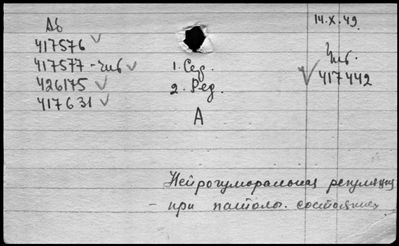 Аб
417576 ✓
417577 - Чив ✓
426175 ✓
417631 ✓
1. Сер.
2. Ред.
А
14.X.49.
Чив.
✓ 417442
Нейрогуморальная регуляция
- при патолог. состояниях